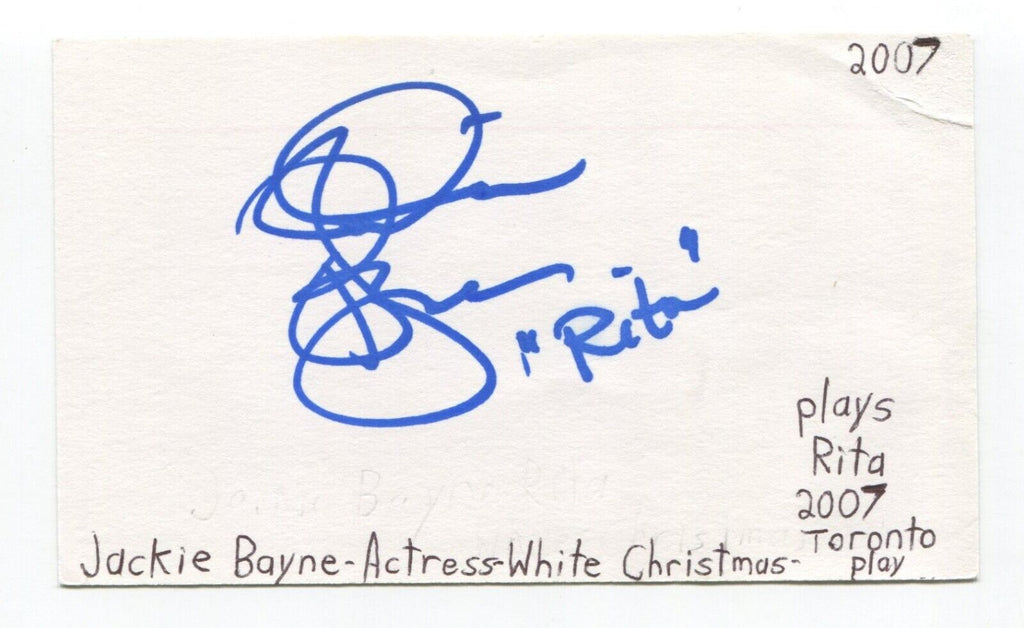 2007
"Rita"
plays
Rita
2007
Toronto
play
Jackie Bayne-Actress-White Christmas-